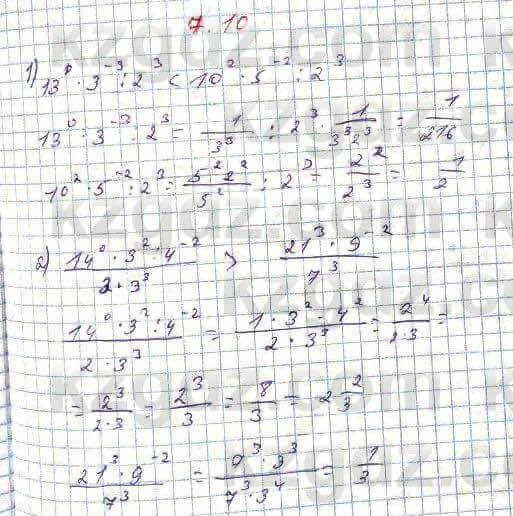 7.10
1) 13⁰ · 3⁻³ : 2³ < 10² · 5⁻² : 2³
13⁰ : 3⁻³ · 2³ = 1/3³ : 2³ · 1/3³2³ = 1/216
10² · 5⁻² : 2³ = 5²2²/5² : 2³ = 2²/2³ = 1/2
2) 14⁰ · 3² : 4⁻² / 2 · 3³ > 21³ · 9⁻² / 7³
14⁰ · 3² : 4⁻² / 2 · 3³ = 1 · 3² · 4² / 2 · 3³ = 2⁴ / 2 · 3 =
= 2³ / 2 · 3 = 2³/3 = 8/3 = 2 2/3
21³ · 9⁻² / 7³ = 7³ · 3³ / 7³ · 3⁴ = 1/3
kzgdz.com